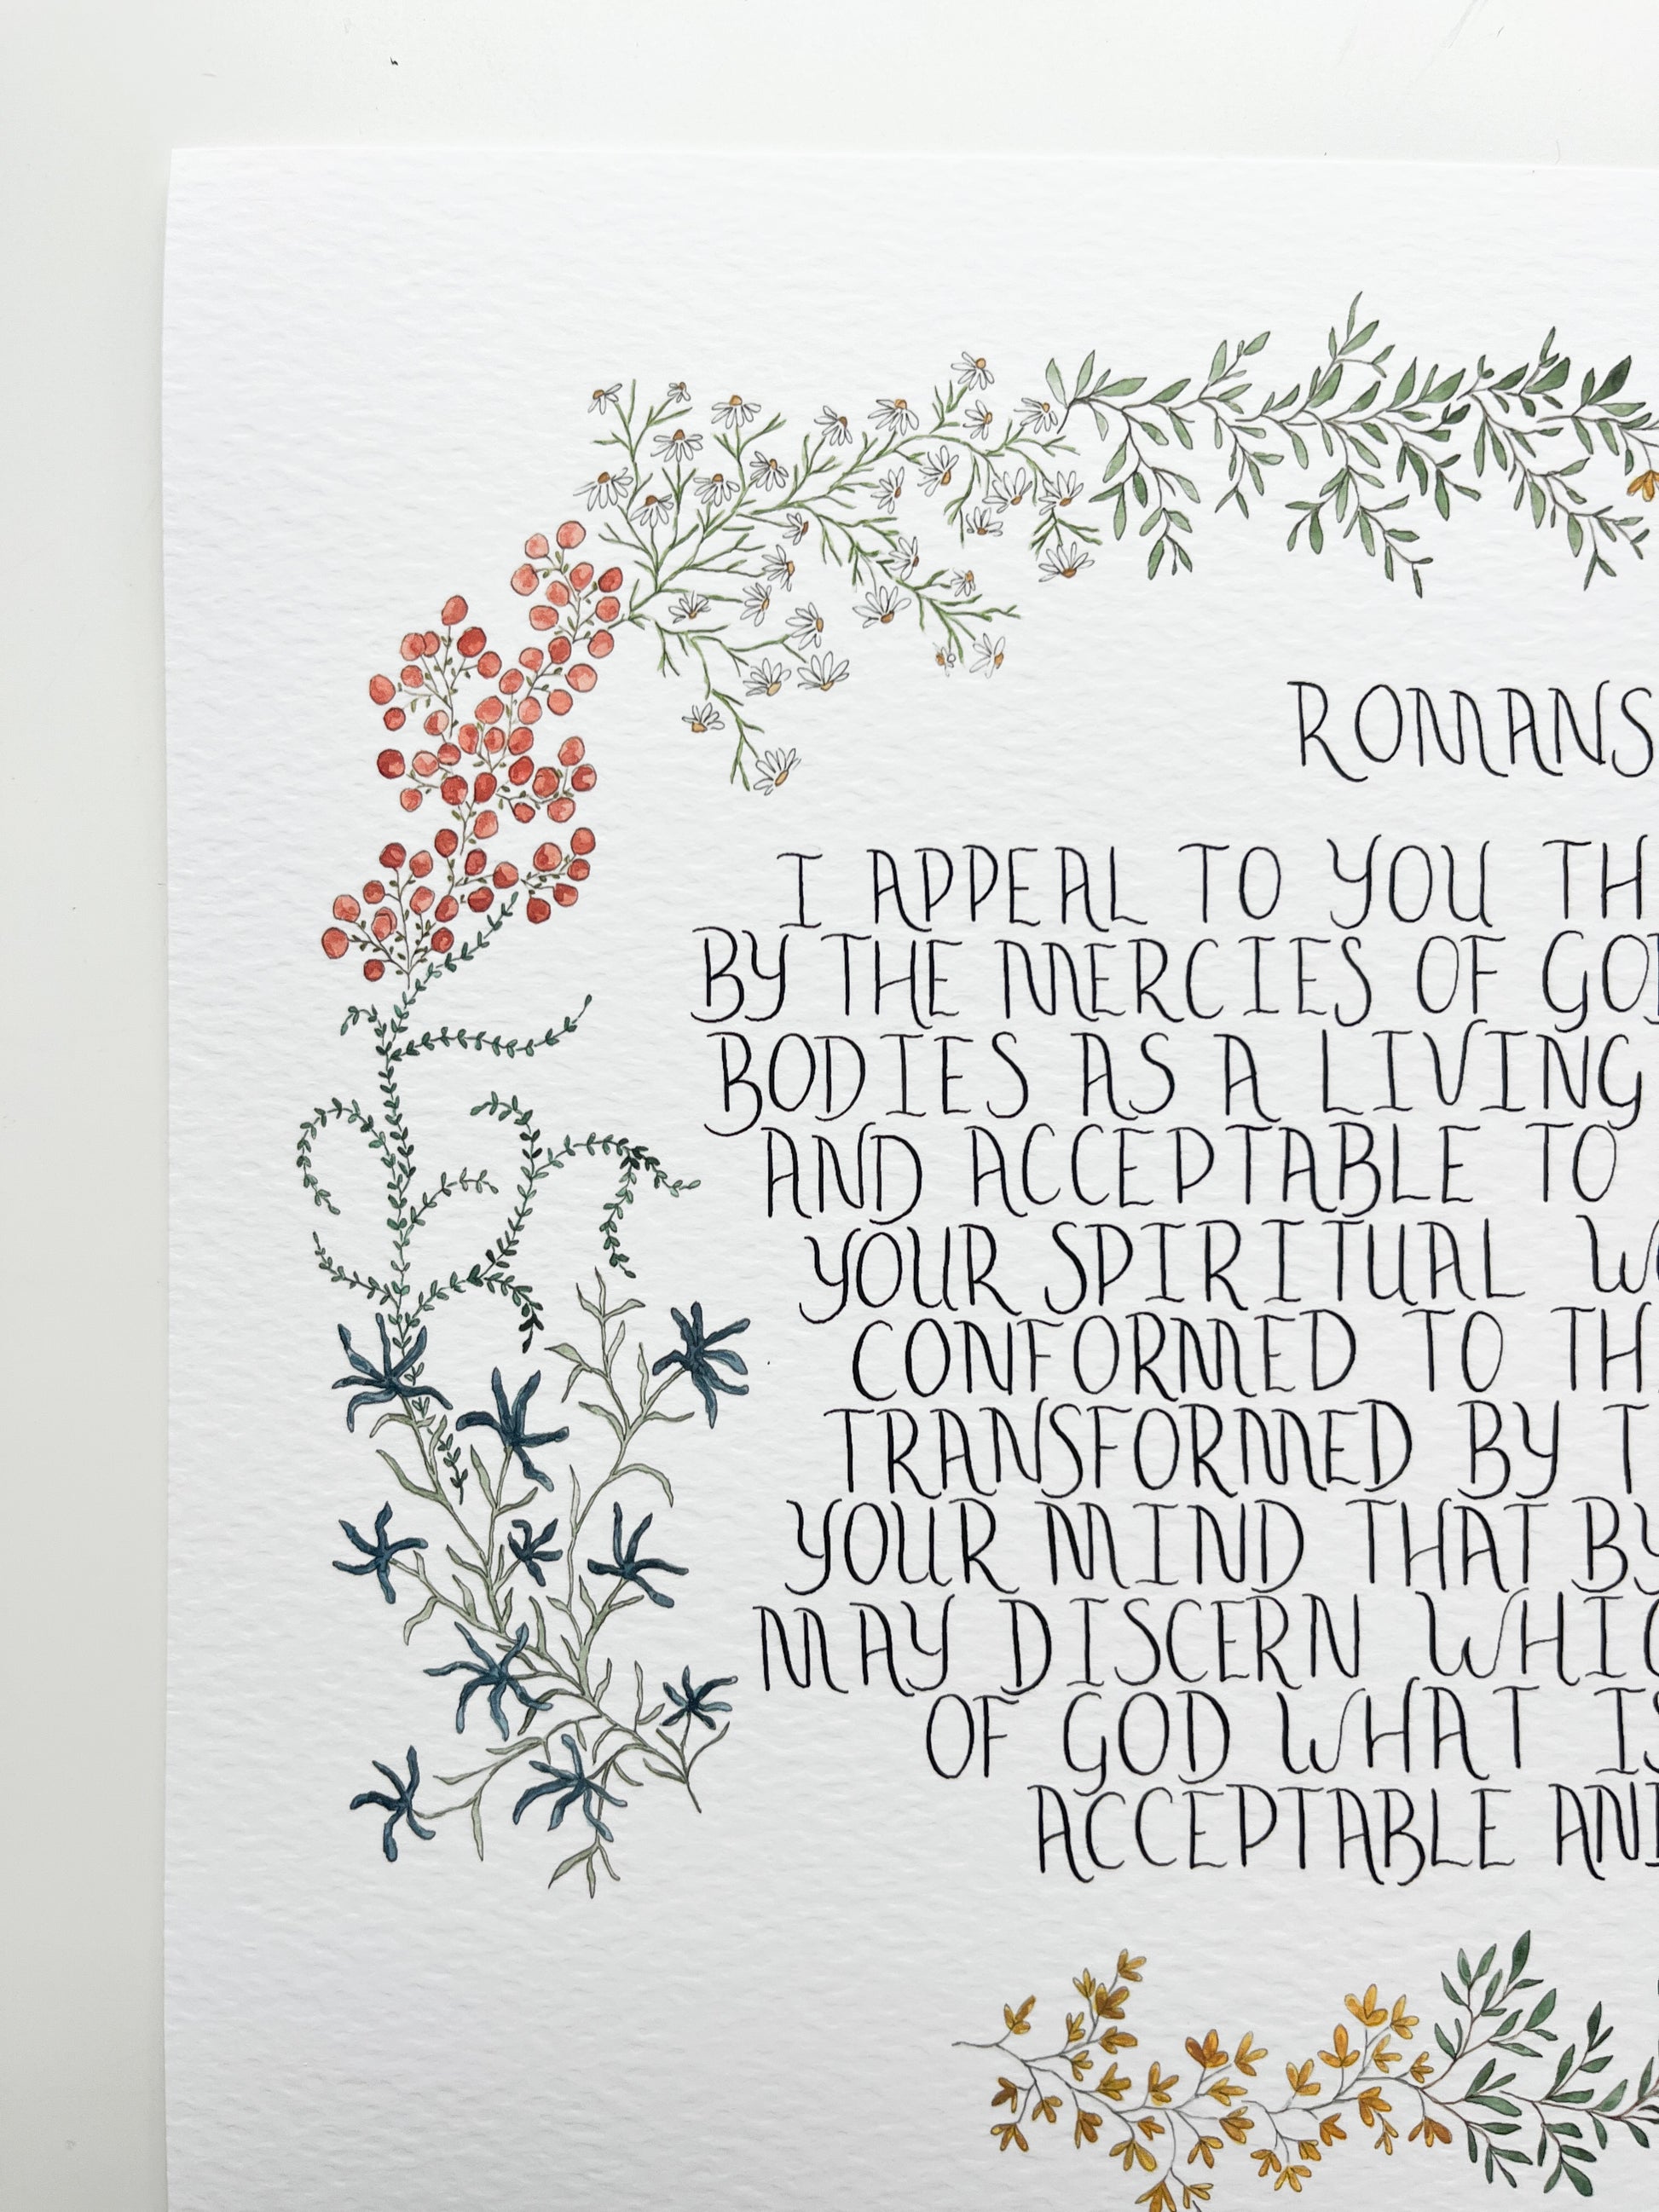 ROMANS
I APPEAL TO YOU TH
BY THE MERCIES OF GOD
BODIES AS A LIVING
AND ACCEPTABLE TO
YOUR SPIRITUAL WO
CONFORMED TO TH
TRANSFORMED BY T
YOUR MIND THAT BY
MAY DISCERN WHIC
OF GOD WHAT IS
ACCEPTABLE AND